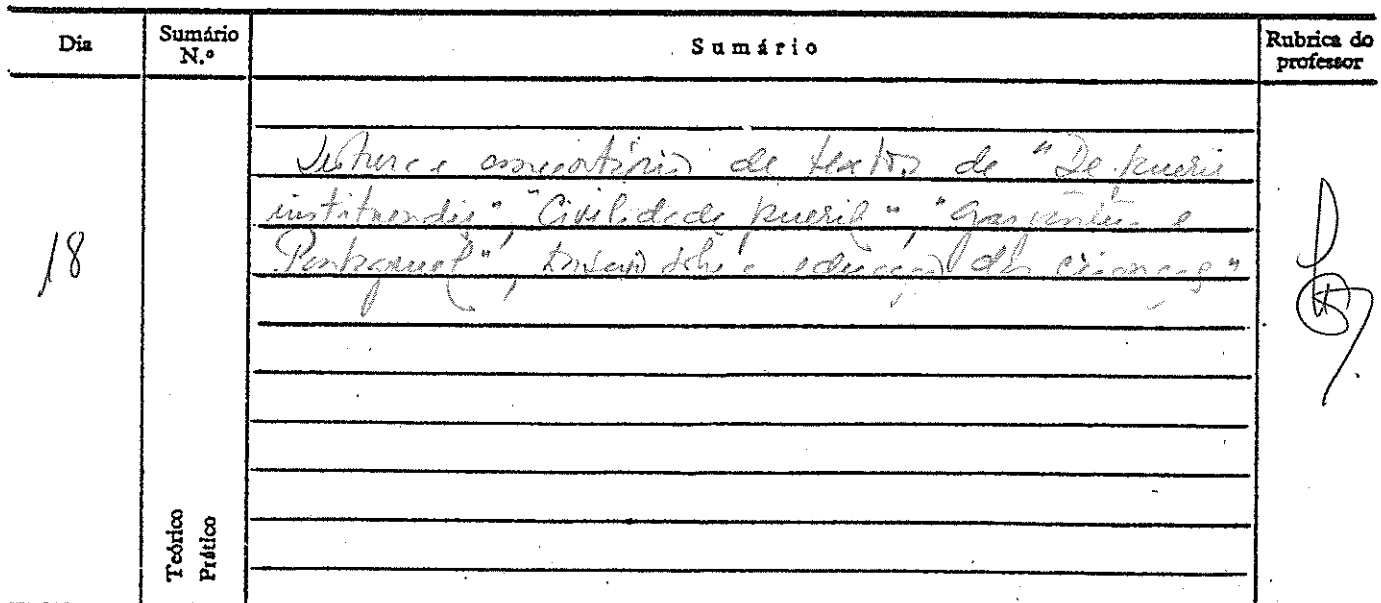 Dia
Sumário N.º
Sumário
Rubrica do professor
18
Leitura e comentário de textos de "De pueris
instituendis", "Civilidade pueril", "Gargantua e
Pantagruel", Ensaio sobre a educação das crianças"
Teórico
Prático